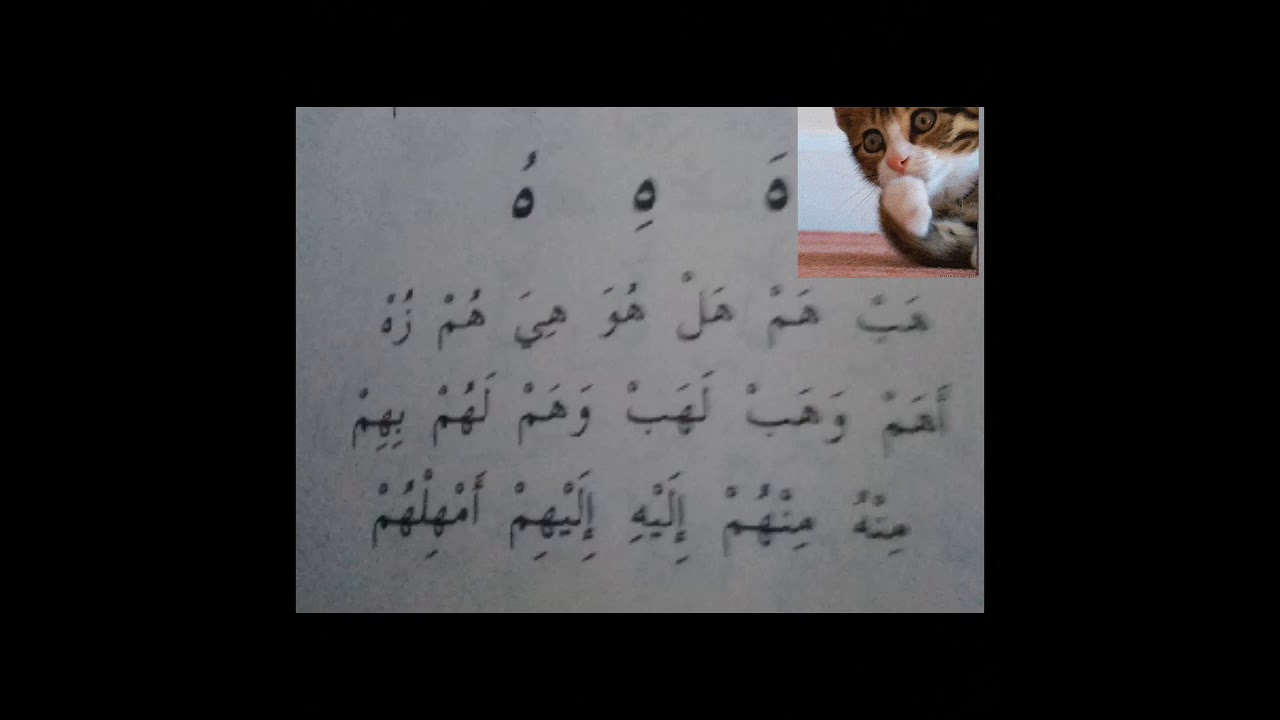 هَ هِ هُ
هَبْ هَمْ هَلْ هُوَ هِيَ هُمْ زُهْ
أَهَمْ وَهَبْ لَهَبْ وَهَمْ لَهُمْ بِهِمْ
مِنْهُ مِنْهُمْ إِلَيْهِ إِلَيْهِمْ أَمْهِلْهُمْ